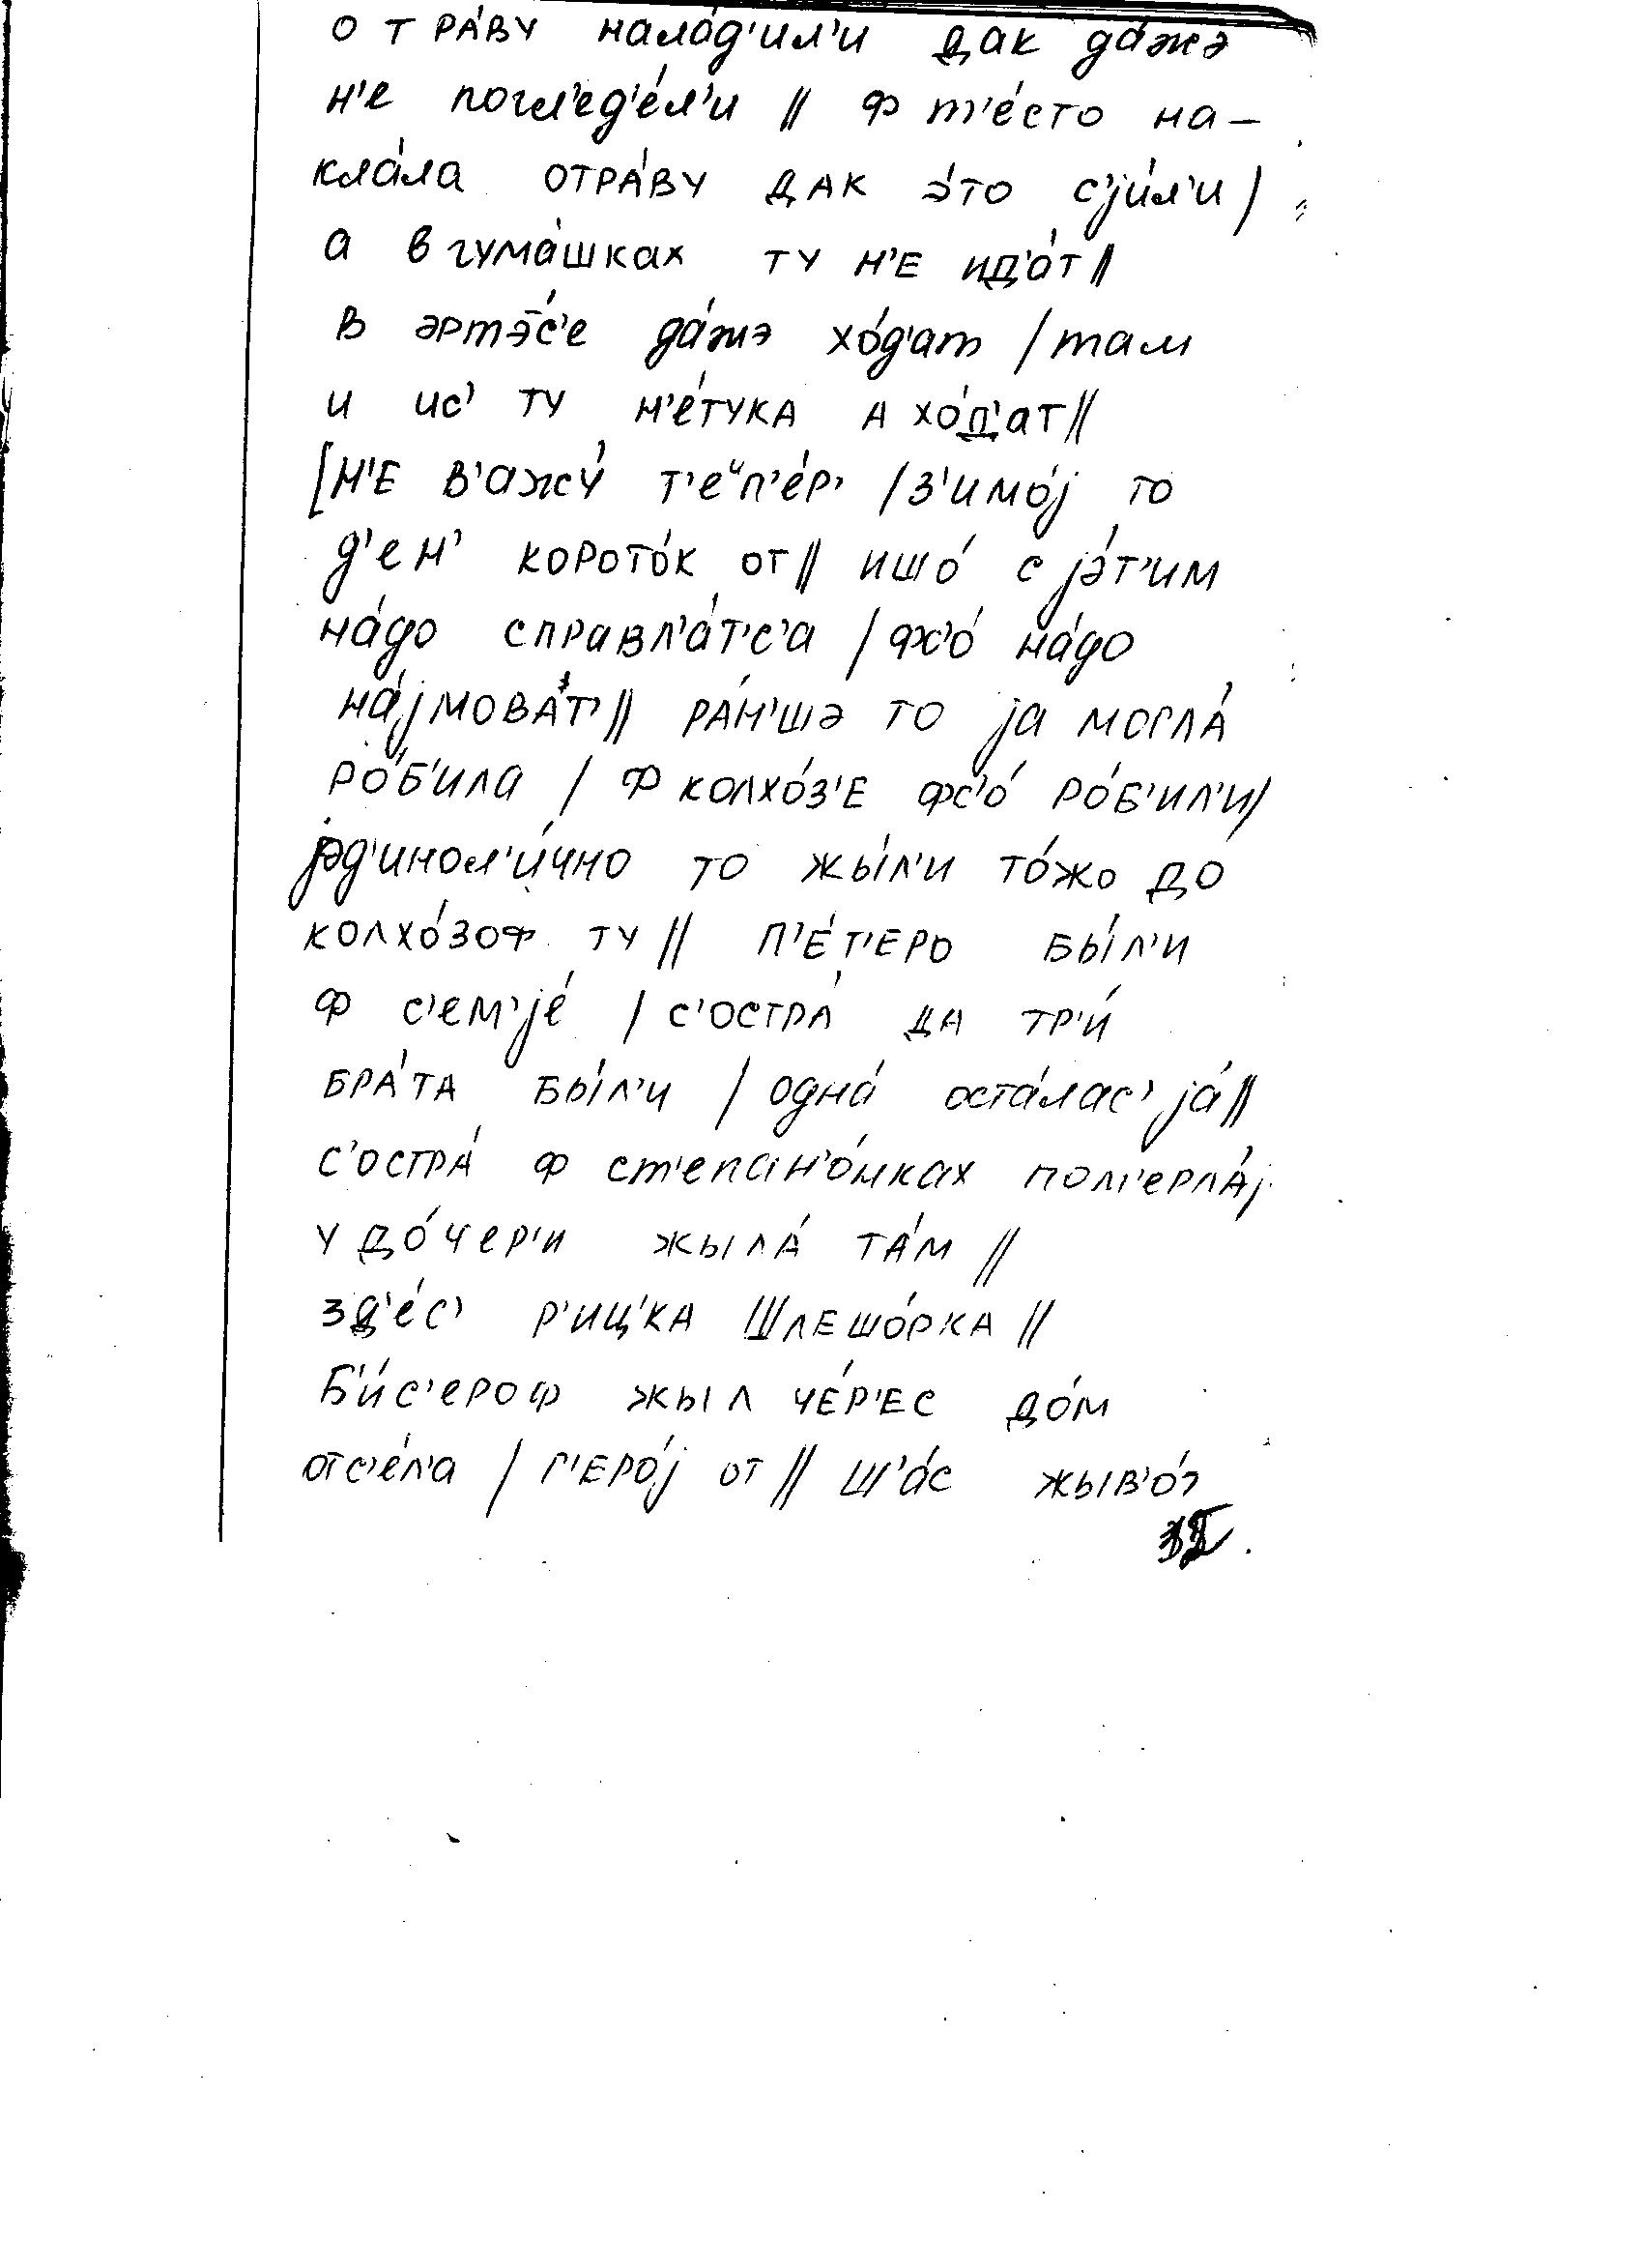 отра́ву нала́д'ил'и дак да́жэ
н'е погл'ед'е́л'и // ф т'е́сто на-
кла́ла отра́ву дак э́то с'jи́л'и /
а в гума́шках ту н'е ид'о́т //
в эртэ́с'е да́жэ хо́д'ат / там
и ис' ту н'е́тука а хо́д'ат //
[н'е в'ажу́ т'еᵘп'е́р' / з'имо́j то
д'ен' корото́к от // ишо́ с jэ́т'им
на́до справл'а́т'с'а / фс'о́ на́до
на́jмоват' // ра́н'шэ то jа могла́
ро́б'ила / ф колхо́з'е фс'о́ ро́б'ил'и /
jэд'инол'и́чно то жы́л'и то́жо до
колхо́зоф ту // п'е́т'еро бы́л'и
ф с'ем'jе́ / с'остра́ да тр'и́
бра́та бы́л'и / одна́ оста́лас' jа́ //
с'остра́ ф ст'епан'о́нках пом'ерла́j
у до́чер'и жыла́ та́м //
зд'е́с' р'иц'ка шлешо́рка //
б'и́с'ероф жыл че́р'ес до́м
отс'е́л'а / г'еро́j от // ш'а́с жыв'о́т